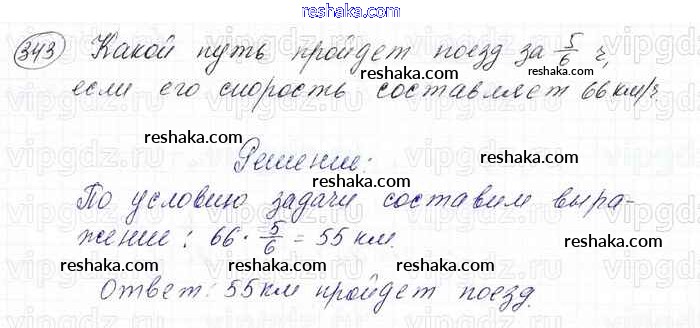 reshaka.com
343 Какой путь пройдет поезд за 5/6 ч,
reshaka.com reshaka.com
если его скорость составляет 66 км/ч.
reshaka.com reshaka.com
Решение:
reshaka.com
По условию задачи составим выра-
reshaka.com reshaka.com
жение: 66 · 5/6 = 55 км.
reshaka.com reshaka.com
Ответ: 55 км пройдет поезд.
reshaka.com
vipgdz.ru